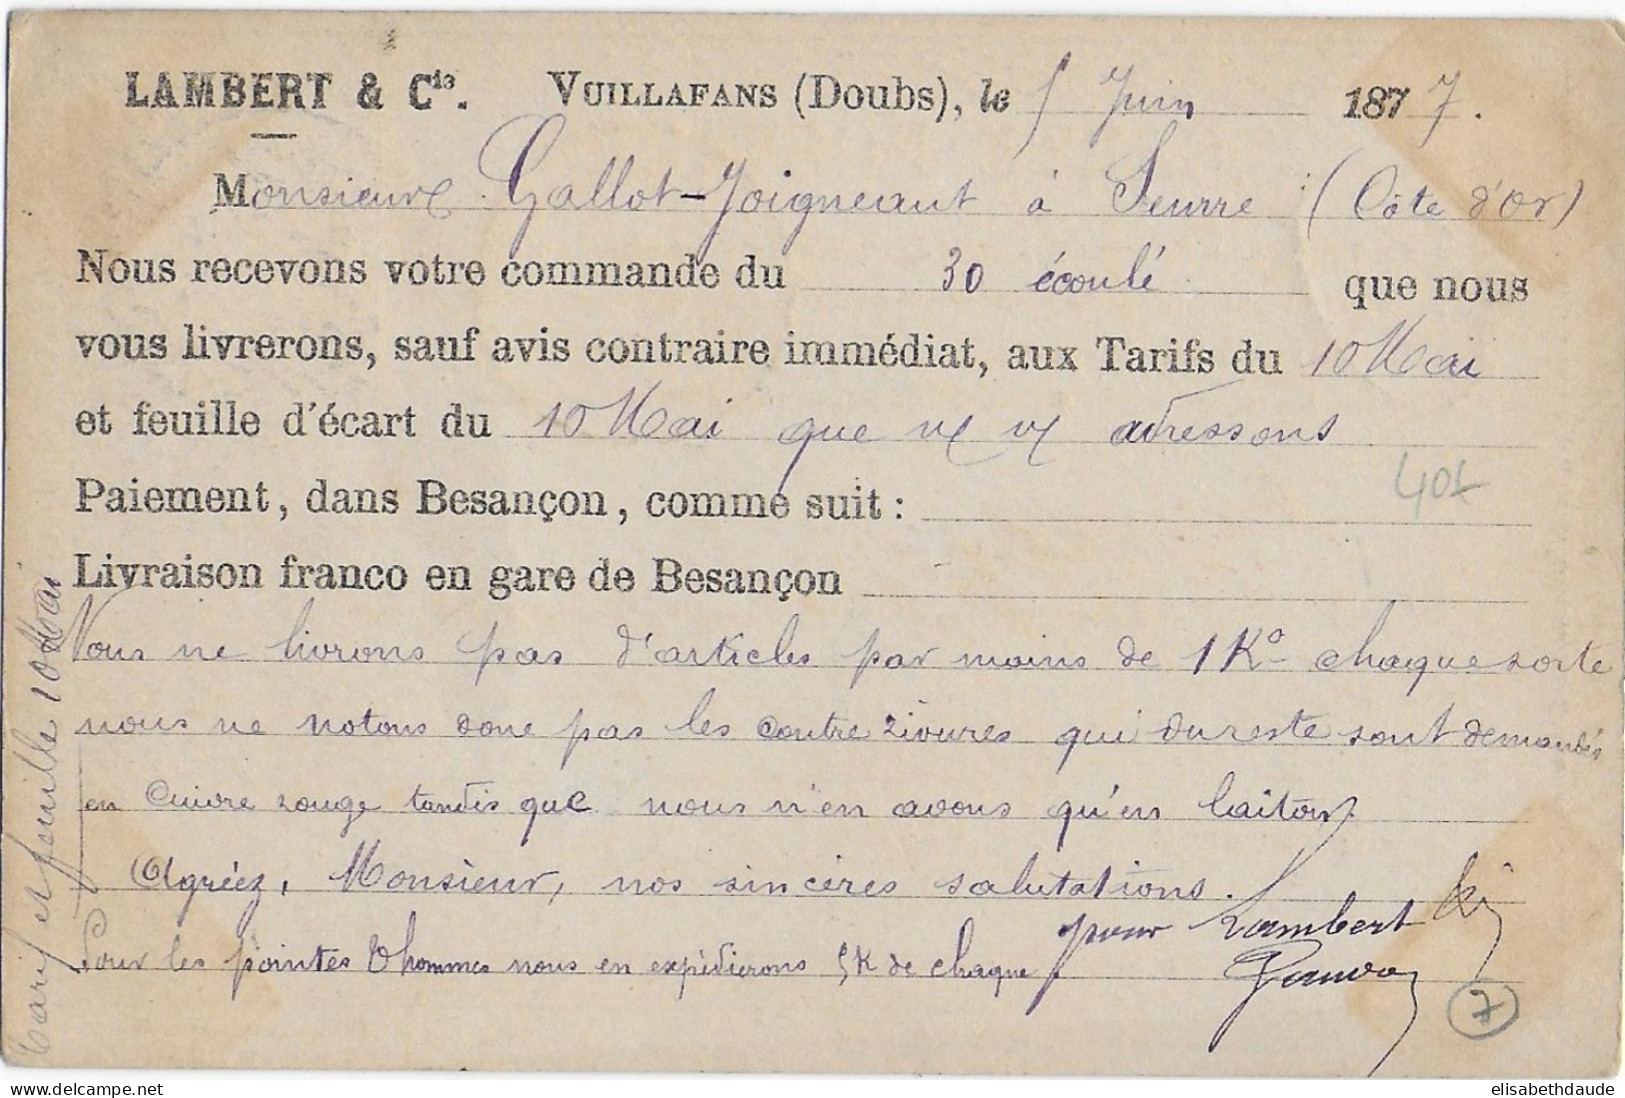 LAMBERT & Cie. VUILLAFANS (Doubs), le 5 Juin 1877.
Monsieur Gallot-Joigneaut à Seurre (Côte d'Or)
Nous recevons votre commande du 30 écoulé que nous
vous livrerons, sauf avis contraire immédiat, aux Tarifs du 10 Mai
et feuille d'écart du 10 Mai que n/ v/ adressons
Paiement, dans Besançon, comme suit :
Livraison franco en gare de Besançon
Nous ne livrons pas d'articles par moins de 1 Ko chaque sorte
nous ne notons donc pas les contre rivures qui du reste sont demandés
en cuivre rouge tandis que nous n'en avons qu'en laiton
Agréez, Monsieur, nos sincères salutations.
pour Lambert & Cie
Pour les pointes d'hommes nous en expédierons 5K de chaque
Tarif et feuille 10 Mai
40f
7
elisabethdaude